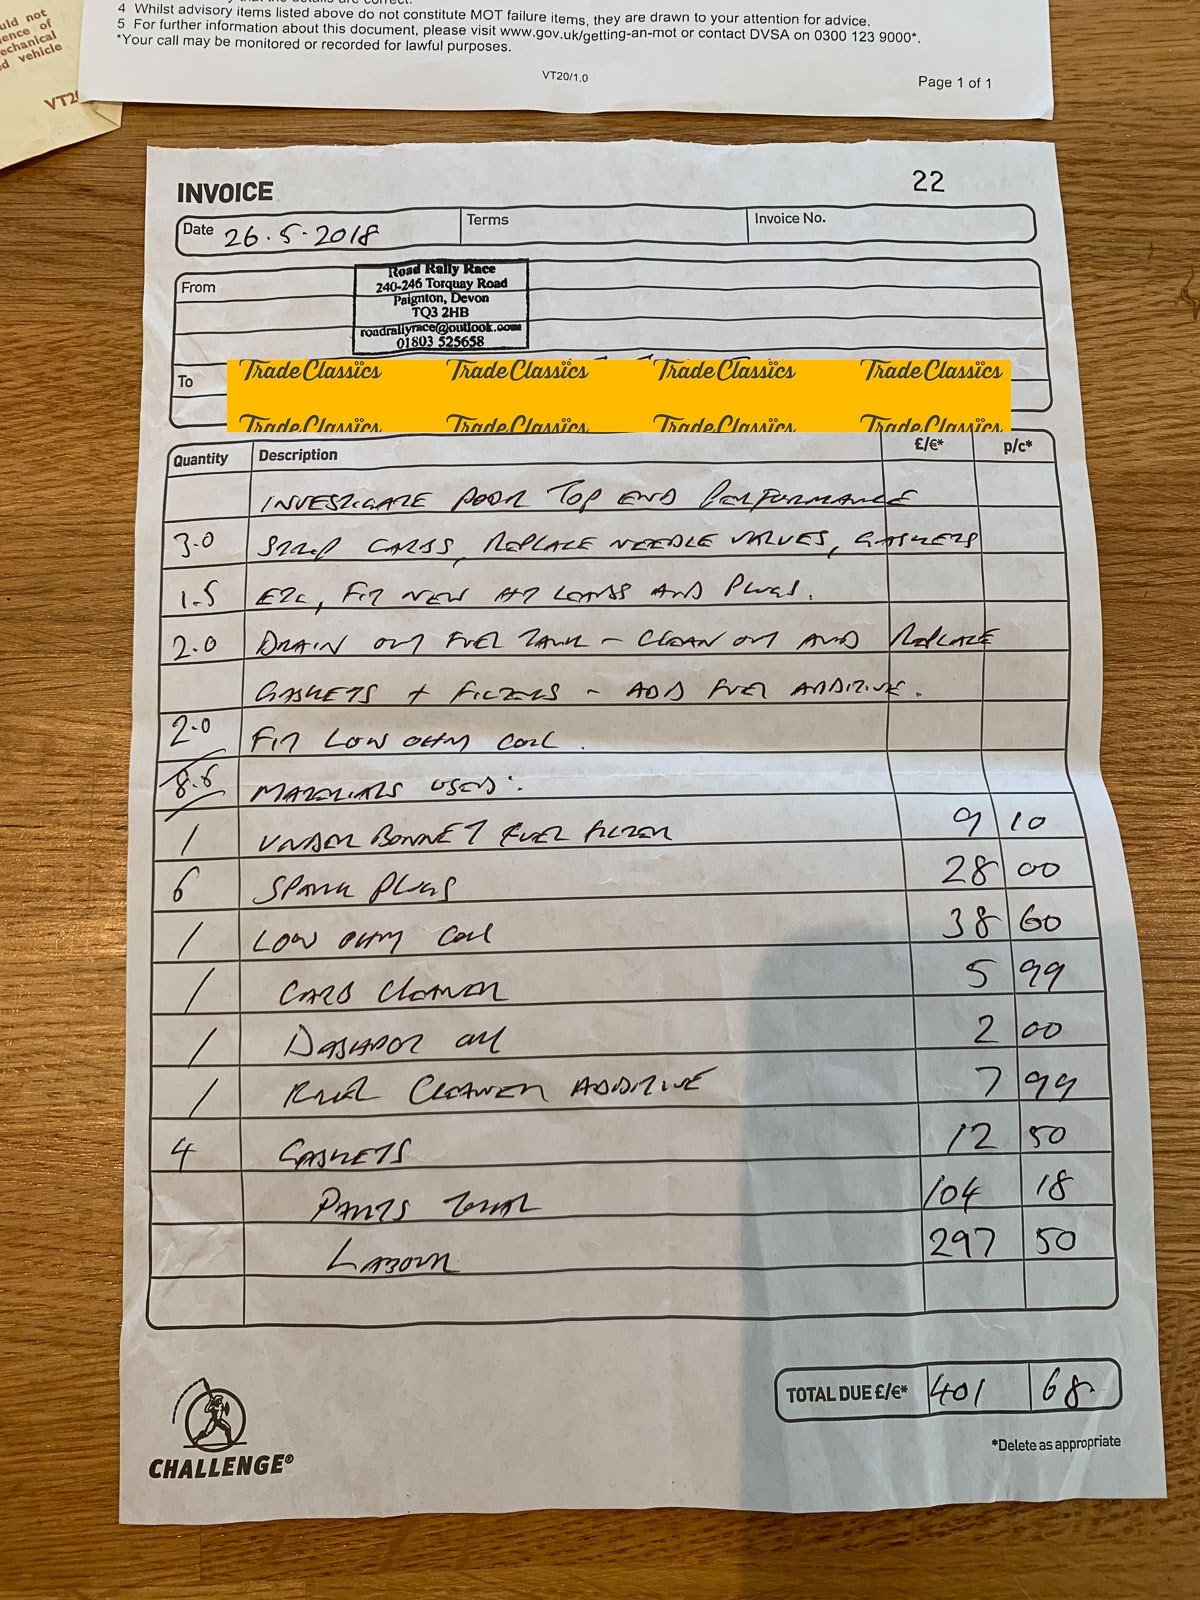 uld not
ence of
echanical
d vehicle
VT2
4 Whilst advisory items listed above do not constitute MOT failure items, they are drawn to your attention for advice.
5 For further information about this document, please visit www.gov.uk/getting-an-mot or contact DVSA on 0300 123 9000*.
*Your call may be monitored or recorded for lawful purposes.
VT20/1.0
Page 1 of 1
INVOICE 22
Date 26.5.2018 Terms Invoice No.
From
Road Rally Race
240-246 Torquay Road
Paignton, Devon
TQ3 2HB
roadrallyrace@outlook.com
01803 525658
To
Trade Classics Trade Classics Trade Classics Trade Classics
Trade Classics Trade Classics Trade Classics Trade Classics
Quantity Description £/€* p/c*
INVESTIGATE POOR TOP END PERFORMANCE
3.0 STRIP CARBS, REPLACE NEEDLE VALVES, GASKETS
1.5 ETC, FIT NEW HT LEADS AND PLUGS.
2.0 DRAIN OUT FUEL TANK - CLEAN OUT AND REPLACE
GASKETS + FILTERS - ADD FUEL ADDITIVE.
2.0 FIT LOW OHM COIL.
8.5 MATERIALS USED:
1 UNDER BONNET FUEL FILTER 9 10
6 SPARK PLUGS 28 00
1 LOW OHM COIL 38 60
1 CARB CLEANER 5 99
1 DASHPOT OIL 2 00
1 CLEANER ADDITIVE 7 99
4 GASKETS 12 50
PARTS TOTAL 104 18
LABOUR 297 50
TOTAL DUE £/€* 401 68
*Delete as appropriate
CHALLENGE®